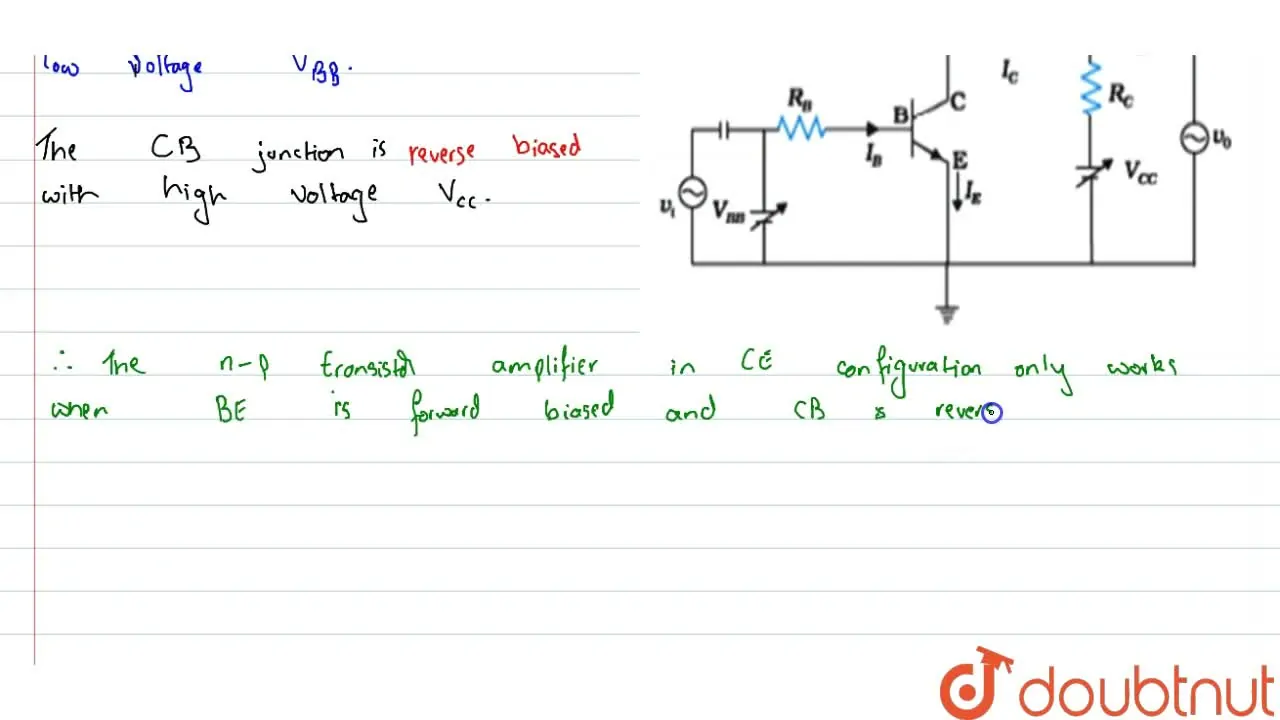 low voltage V_BB.
The CB junction is reverse biased
with high voltage V_CC.
R_B
B
C
I_C
R_C
I_B
E
I_E
υ_i
V_BB
V_CC
υ_0
∴ The n-p transistor amplifier in CE configuration only works
when BE is forward biased and CB is revers
doubtnut